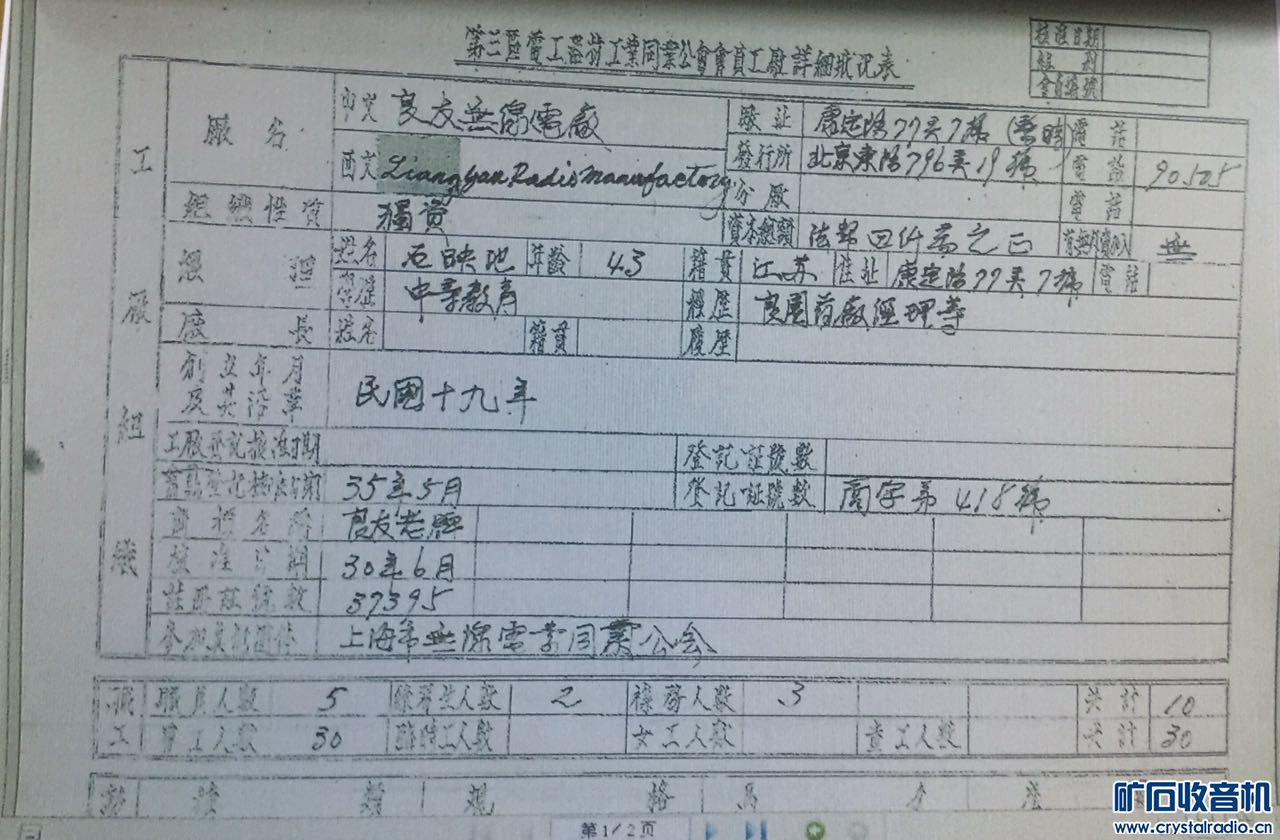 第三區電工器材工業同業公會會員工廠詳細狀況表
核准日期
組別
會員編號
工廠組織
廠名
中文 良友無線電廠
廠址 康定路77弄7號(暫時) 電話
西文 Liangyau Radio Manufactory
發行所 北京東路796弄19號 電話 90525
分廠 電話
組織性質 獨資 資本總額 法幣四仟萬之正 無
經理 姓名 石映地 年齡 43 籍貫 江苏 住址 康定路77弄7號 電話
學歷 中等教育 經歷
廠長 姓名 籍貫 履歷
創立年月及其沿革 民國十九年
工廠登記核准日期 登記証號數
商業登記核准日期 35年5月 登記証號數 商字第418號
商標名稱 良友老牌
核准日期 30年6月
註冊証號數 37395
參加其他團体 上海市無線電業同業公会
職工
職員人數 5 練習生人數 2 雜務人數 3 共計 10
男工人數 30 臨時工人數 女工人數 童工人數 共計 30
種類 規格
第1/2页
矿石收音机
www.crystalradio.cn